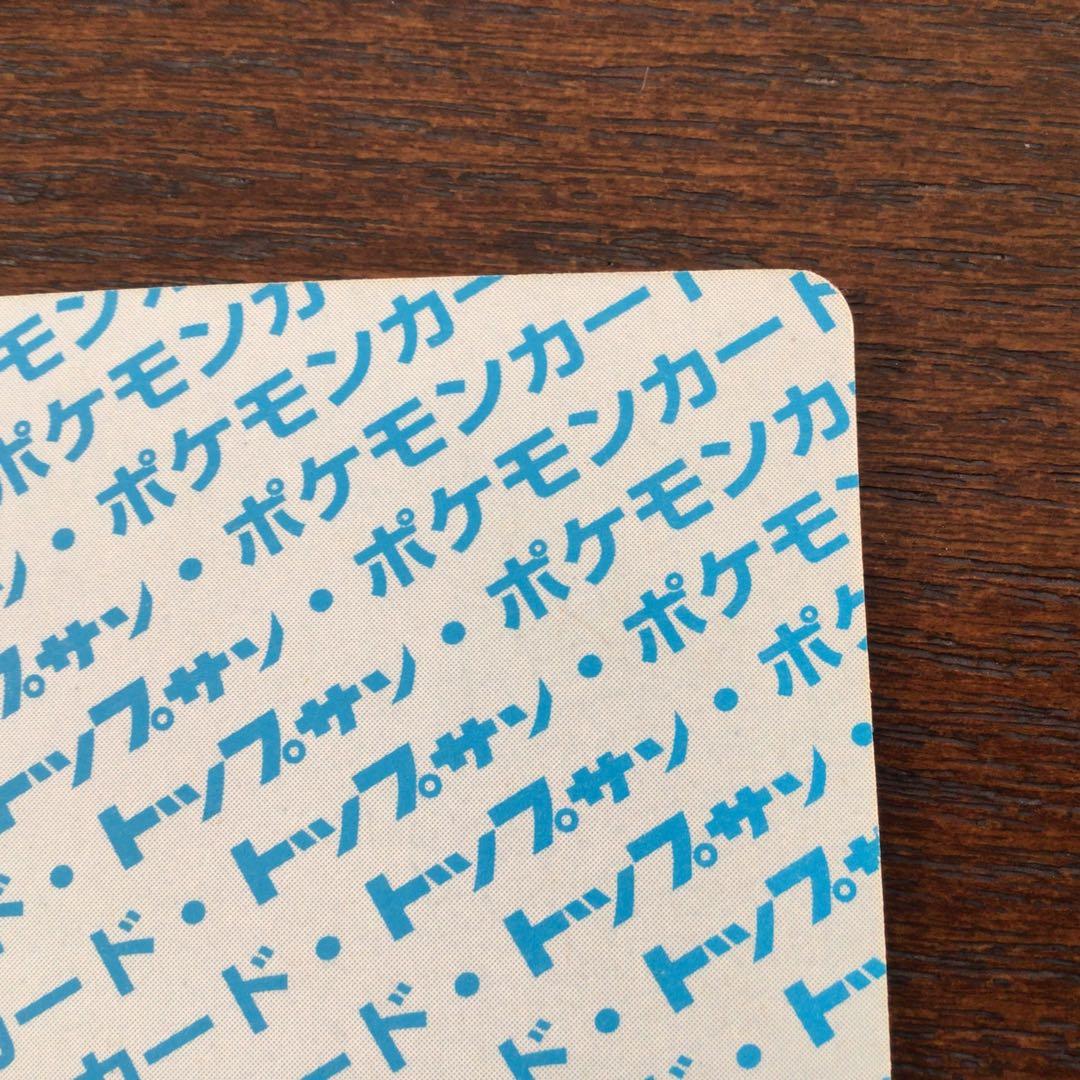 モンカ
ポケモンカ
ン・ポケモンカー
プサン・ポケモンカード
トップサン・ポケモンカード
ド・トップサン・ポケモンカ
カード・トップサン・ポケモン
カード・トップサン・ポケ
カード・トップサン・
ード・トップサ
ド・ト